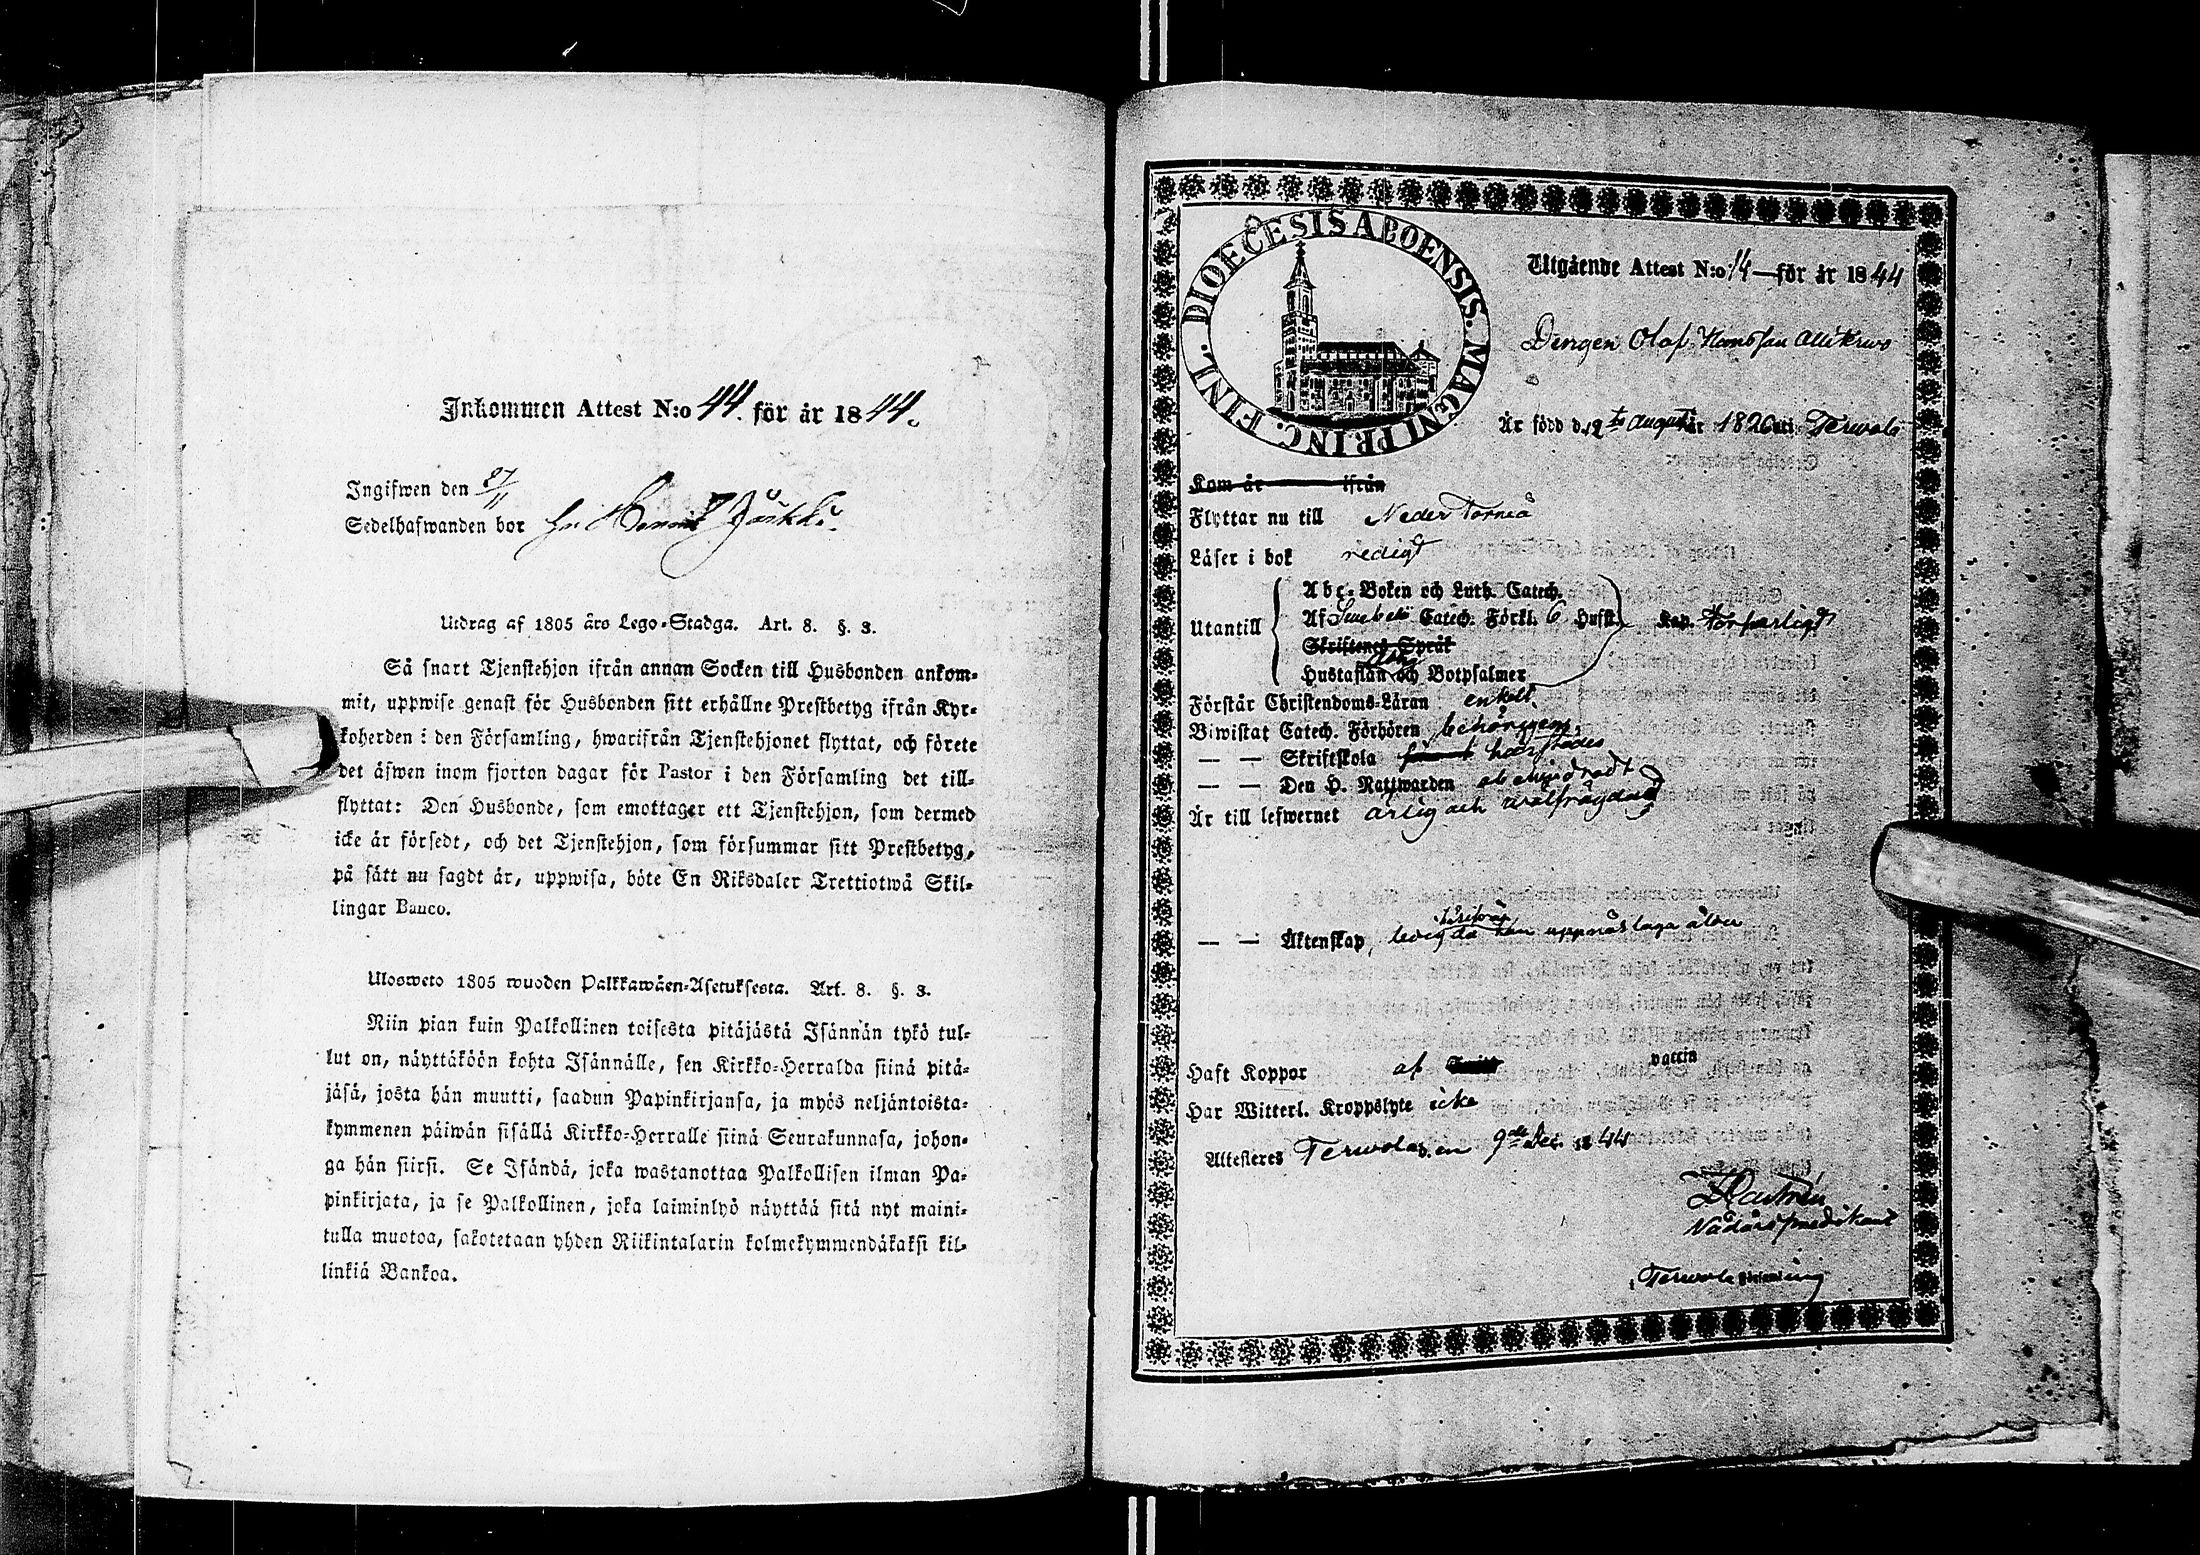 Inkommen Attest N:o 44. för år 1844.
Ingifwen den 27/11
Sedelhafwanden bor hr Henrik Jåckki.
Utdrag af 1805 års Lego-Stadga. Art. 8. §. 3.
Så snart Tjenstehjon ifrån annan Socken till Husbonden ankom-
mit, uppwise genast för Husbonden sitt erhållne Prestbetyg ifrån Kyr-
koherden i den Församling, hwarifrån Tjenstehjonet flyttat, och förete
det äfwen inom fjorton dagar för Pastor i den Församling det till-
flyttat: Den Husbonde, som emottager ett Tjenstehjon, som dermed
icke är försedt, och det Tjenstehjon, som försummar sitt Prestbetyg,
på sätt nu sagdt är, uppwisa, böte En Riksdaler Trettiotwå Skil-
lingar Banco.
Ulosweto 1805 wuoden Palkkawäen-Asetuksesta. Art. 8. §. 3.
Niin pian kuin Palkollinen toisesta pitäjästä Isännän tykö tul-
lut on, näyttäköön kohta Isännälle, sen Kirkko-Herralda siinä pitä-
jäsä, josta hän muutti, saadun Papinkirjansa, ja myös neljäntoista-
kymmenen päiwän sisällä Kirkko-Herralle siinä Seurakunnasa, johon-
ga hän siirsi. Se Isändä, joka wastanottaa Palkollisen ilman Pa-
pinkirjata, ja se Palkollinen, joka laiminlyö näyttää sitä nyt maini-
tulla muotoa, sakotetaan yhden Riikintalarin kolmekymmendäkaksi kil-
linkiä Bankoa.
DIOECESIS ABOENSIS. MAGNI PRINC. FINL.
Utgående Attest N:o 14 för år 1844
Drngen Olof Hansson Allikrwo
Är född d. 12te Augusti år 1826 uti Terwola
Kom år ifrån
Flyttar nu till Neder Torneå
Läser i bok redigt
Utantill
Abc-Boken och Luth. Catech.
Af Swebelii Catech. Förkl. 6 Hufst. Kap. försvarligt
Skriftenes Språk
Hustaflan och Botpsalmer
Förstår Christendoms-Läran enkelt.
Biwistat Catech. Förhören behörigen,
— — Skriftskola härstädes
— — Den H. Nattwarden
Är till lefwernet ärlig och wälfrägdad
— — Äktenskap, ledig då han uppnås laga ålder
Haft Koppor af vaccin
Har Witterl. Kroppslyte icke
Attesteres Terwola den 9de Dec. 1844
Z Castrén
Nådårspredikant
Terwola församling